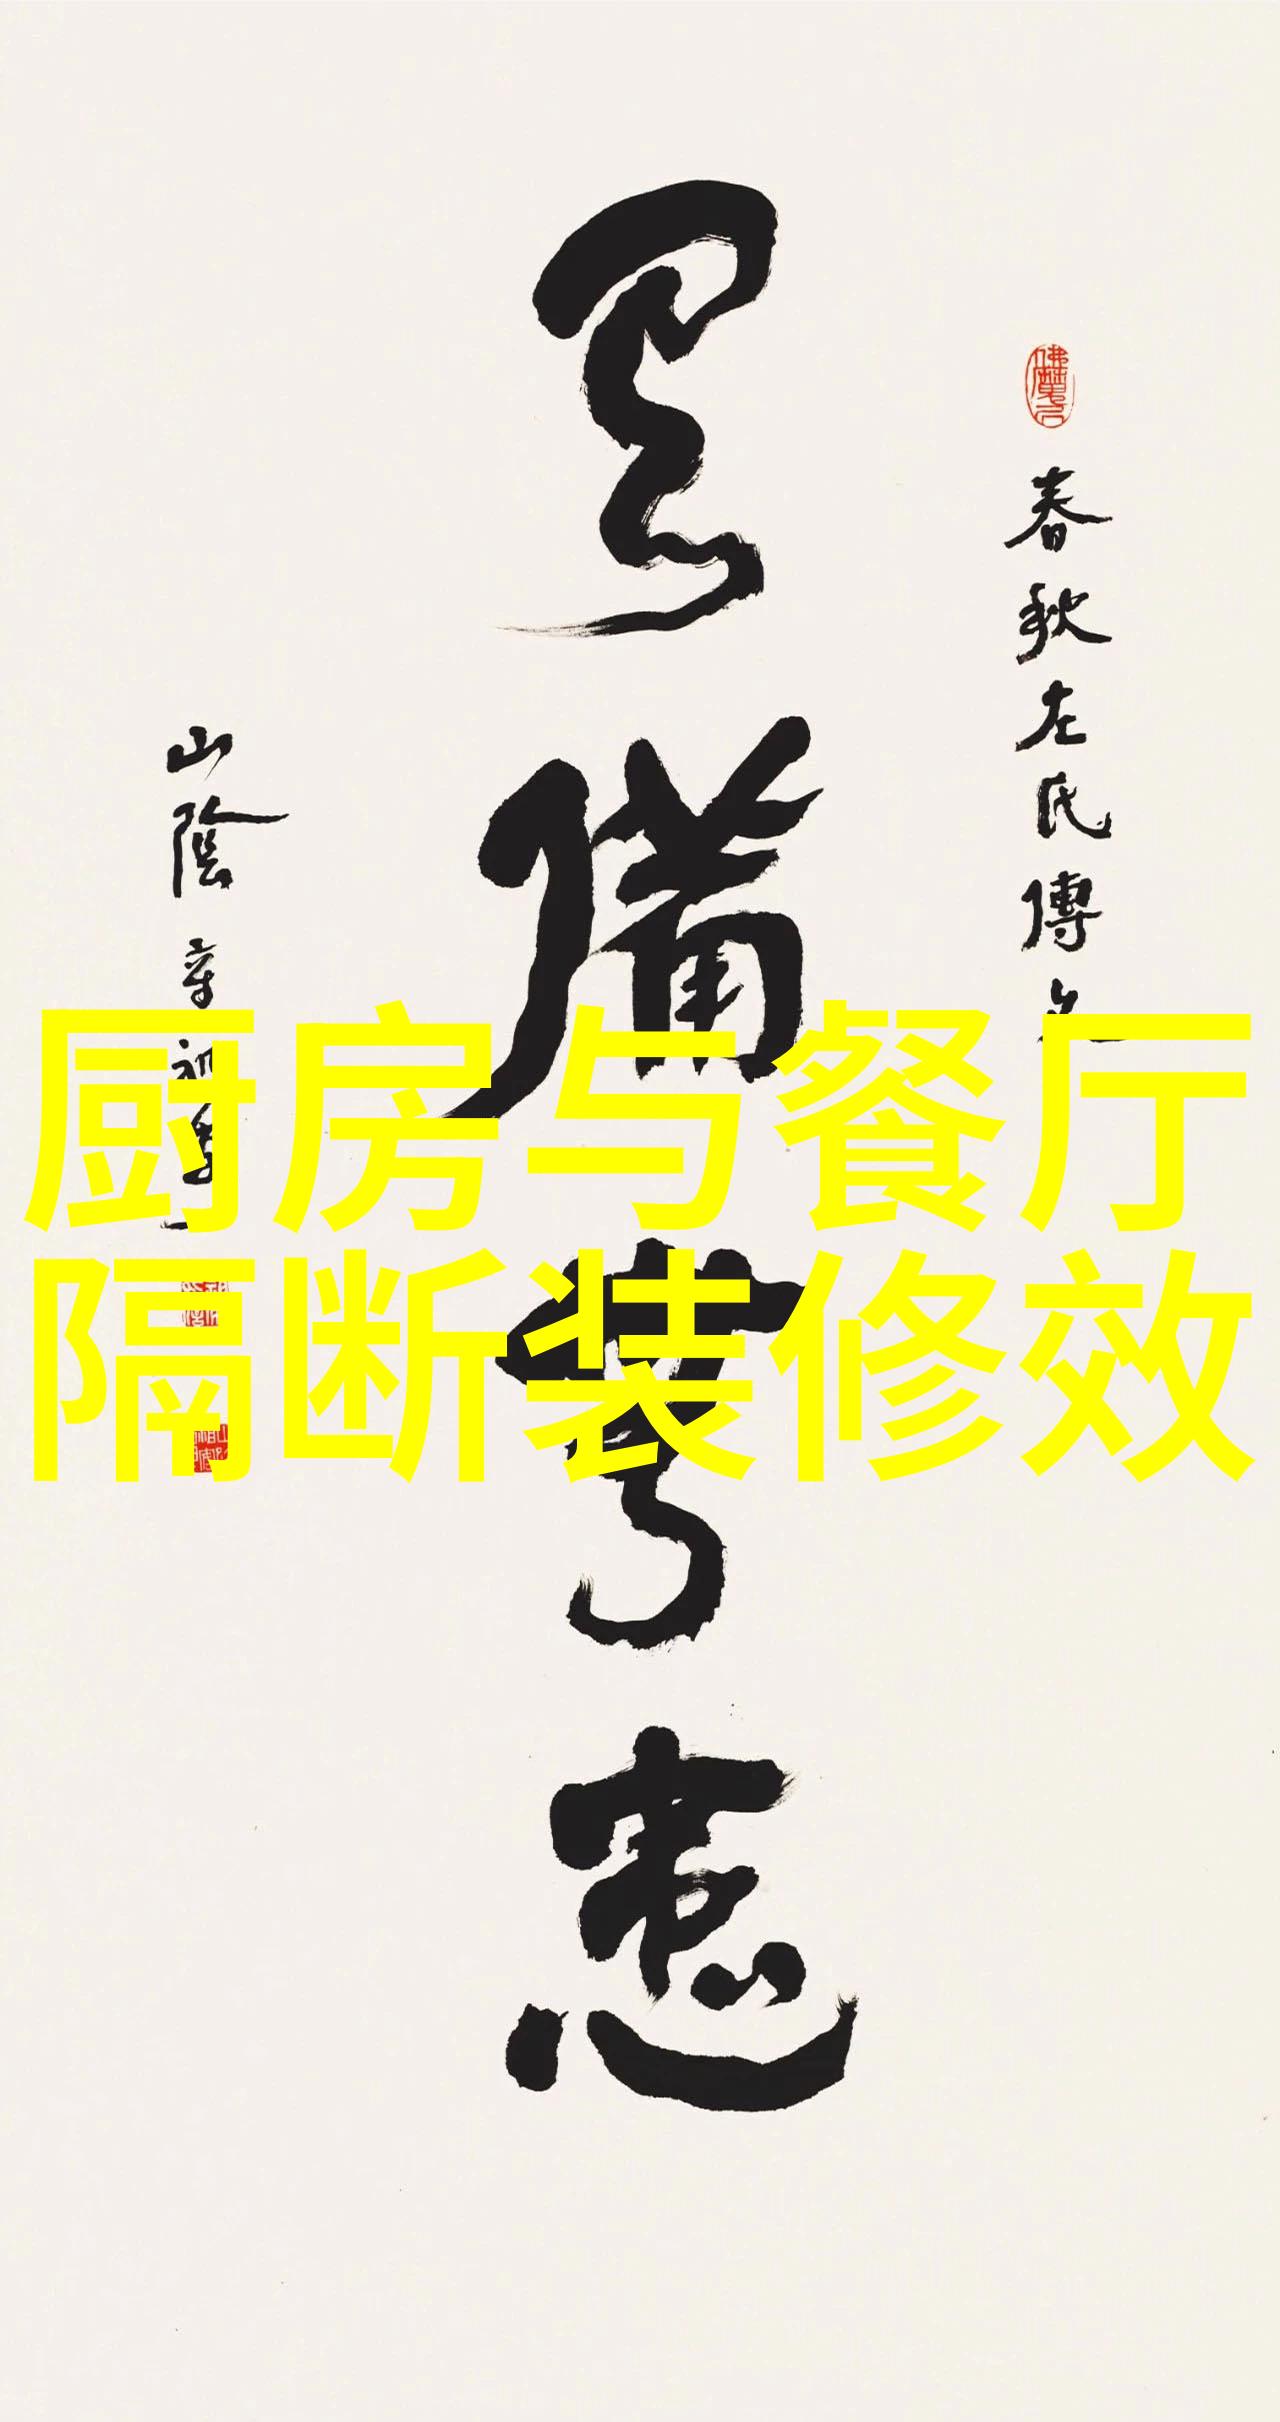 春秋左氏傳
有備無患
山陰
厨房与餐厅
隔断装修效